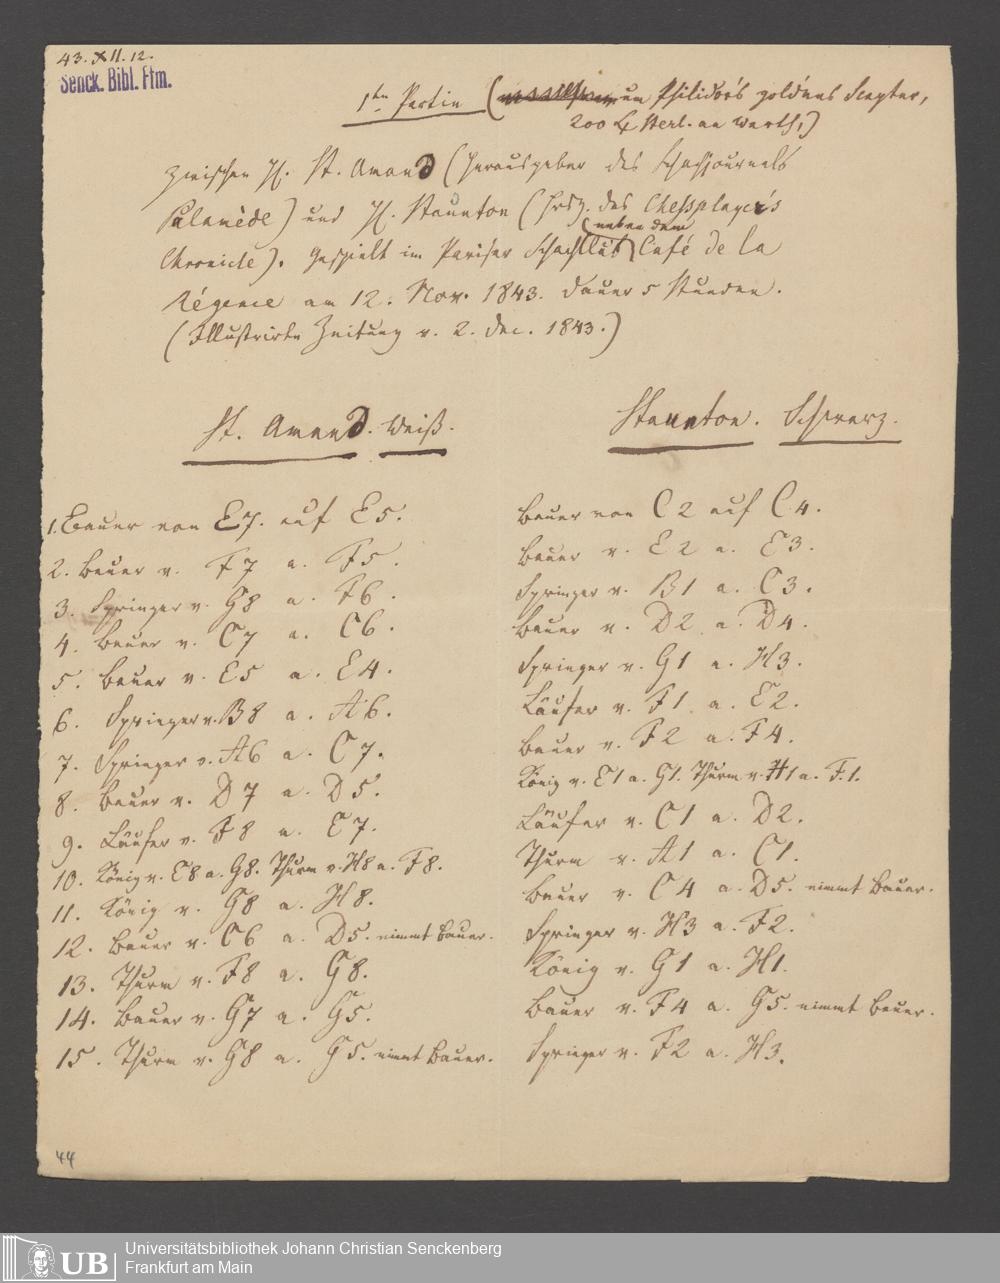 43. XII. 12.
Senck. Bibl. Ffm.
1te Partie ( um Philidor's goldenes Scepter,
200 £ Sterl. an Werth,)
zwischen H. St. Amand (Herausgeber des Schachjournals
Palamède) und H. Staunton (Hrsg. des Chessplayer's
Chronicle). Gespielt im Pariser Schachclub (neben dem) Café de la
Régence am 12. Nov. 1843. Dauer 5 Stunden.
(Illustrirte Zeitung v. 2. Dec. 1843.)
St. Amand. Weiß.
Staunton. Schwarz.
1. Bauer von E7. auf E5.
Bauer von C2 auf C4.
2. Bauer v. F7 a. F5.
Bauer v. E2 a. E3.
3. Springer v. G8 a. F6.
Springer v. B1 a. C3.
4. Bauer v. C7 a. C6.
Bauer v. D2 a. D4.
5. Bauer v. E5 a. E4.
Springer v. G1 a. H3.
6. Springer v. B8 a. A6.
Läufer v. F1 a. E2.
7. Springer v. A6 a. C7.
Bauer v. F2 a. F4.
8. Bauer v. D7 a. D5.
König v. E1 a. G1. Thurm v. H1 a. F.1.
9. Läufer v. F8 a. E7.
Läufer v. C1 a. D2.
10. König v. E8 a. G8. Thurm v. H8 a. F8.
Thurm v. A1 a. C1.
11. König v. G8 a. H8.
Bauer v. C4 a. D5. nimmt Bauer.
12. Bauer v. C6 a. D5. nimmt Bauer.
Springer v. H3 a. F2.
13. Thurm v. F8 a. G8.
König v. G1 a. H1.
14. Bauer v. G7 a. G5.
Bauer v. F4 a. G5. nimmt Bauer.
15. Thurm v. G8 a. G5. nimmt Bauer.
Springer v. F2 a. H3.
44
UB
Universitätsbibliothek Johann Christian Senckenberg
Frankfurt am Main